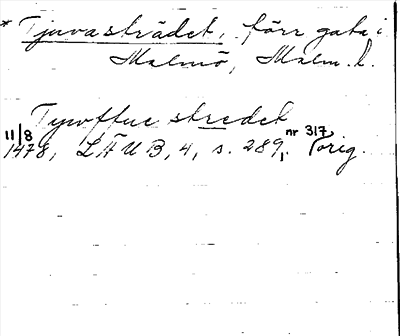 * Tjuvasträdet, förr gata i
Malmö, Malm. l.
Tywffue stredet
11/8 1478, LÄUB, 4, s. 289, nr 317. Porig.